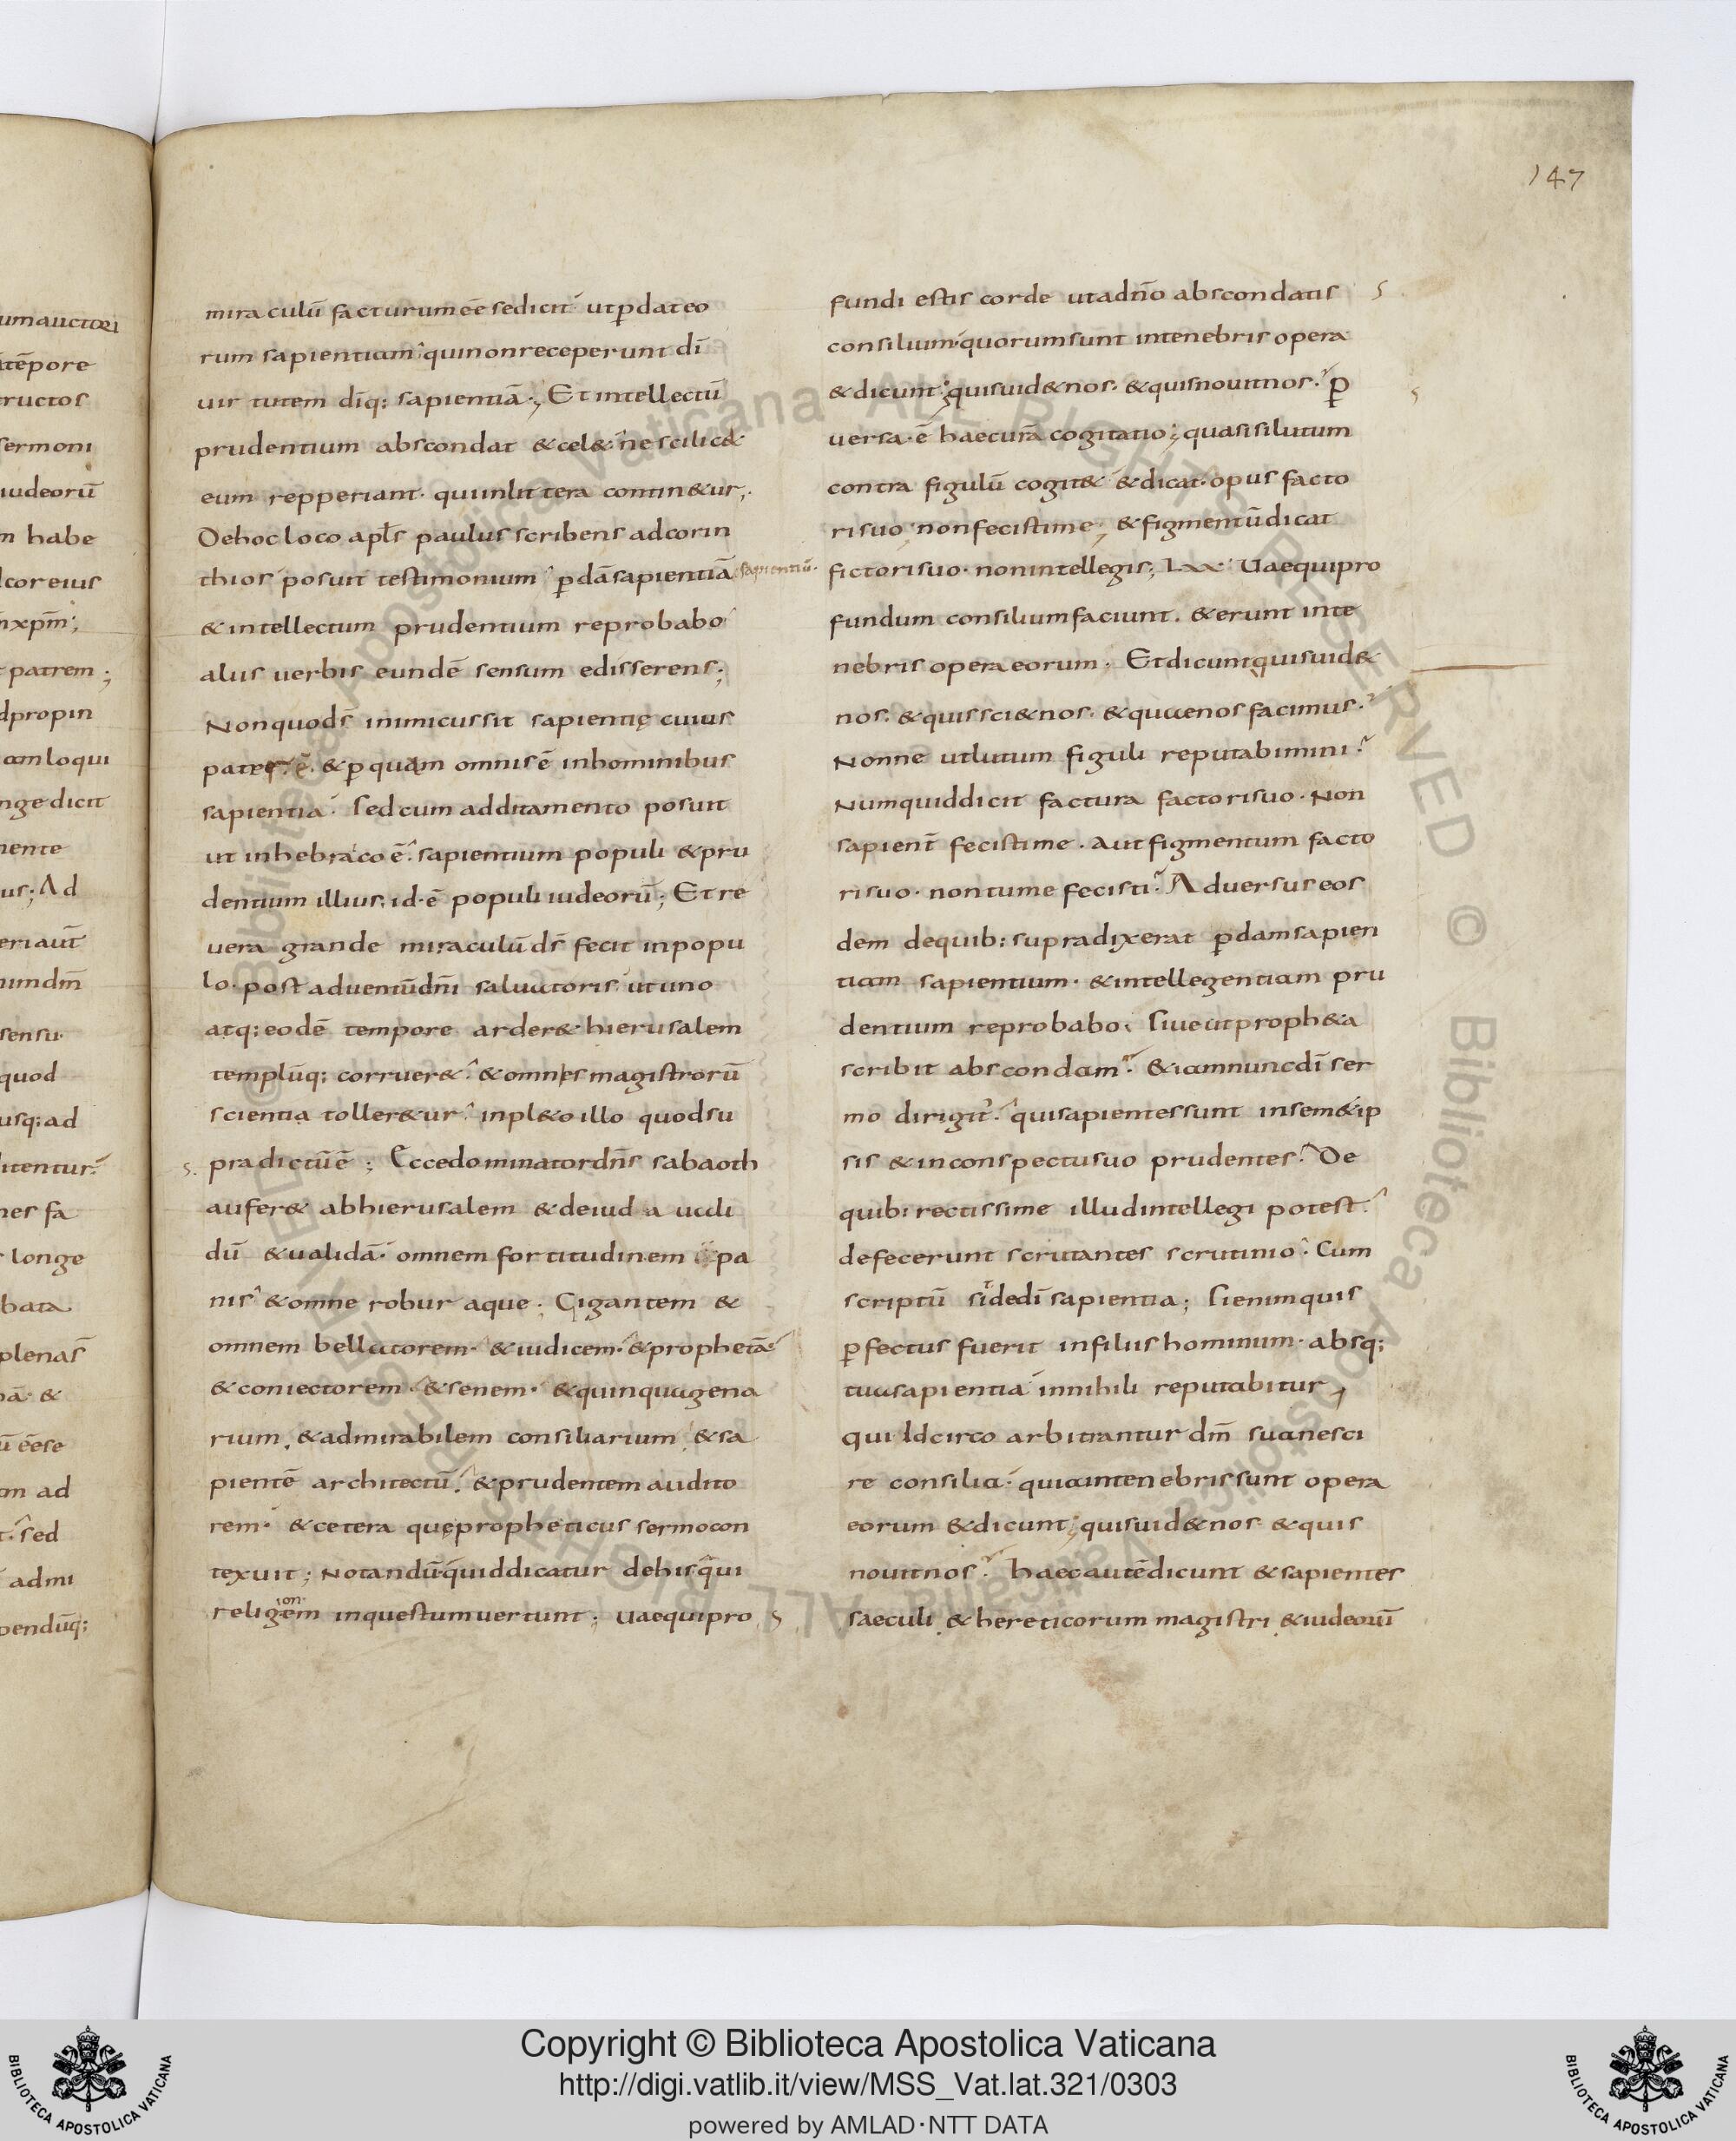 147
umauctori
tēpore
ructos
sermoni
iudeorū
m habe
cor eius
nxpm̄;
patrem;
dpropin
amloqui
nge dicit
mente
us; Ad
eri aut̄
mmdm̄
sensu
quod
usq; ad
litentur
nes fa
longe
bata
plenas̄
&
ēēse
m ad
sed
admi
pendūq;
mira culū facturum eē se dicit ut ꝑdat eo
rum sapientiam qui non receperunt dī
uir tutem dīq; sapientiā; Et intellectū
prudentium abscondat & cel& ne scilic&
eum repperiant qui in lit tera contin&ur;
De hoc loco apl̄s paulus scribens ad corin
thios posuit testimonium ꝑdā sapientiā sapientiū
& intellectum prudentium reprobabo
aliis uerbis eundē sensum edisserens;
Non quod ds̄ inimicus sit sapientię cuius
patrę ē & ꝑ quam omnis ē in hominibus
sapientia Sed cum additamento posuit
ut in hebraico ē sapientium populi & pru
dentium illius id ē populi iudeorū; Et re
uera grande miraculū ds̄ fecit in popu
lo post aduentū dn̄i saluatoris ut uno
atq; eodē tempore arder& hierusalem
templūq; corruer& & omnes magistrorū
scientia toller&ur in pl&o illo quod su
s. pradictū ē; Ecce dominator dn̄s sabaoth
aufer& ab hierusalem & de iud a uali
dū & ualidā omnem fortitudinem pa
nis & omne robur aque; Gigantem &
omnem bellatorem & iudicem & prophetā
& coniectorem & senem & quinquagena
rium & admirabilem consiliarium & sa
pientē architectū & prudentem audito
rem & cetera quę propheticus sermo con
texuit; Notandū quid dicatur de his qui
religionem in questum uertunt; Uae qui pro s
fundi estis corde ut a dn̄o abscondatis s
consilium quorum sunt in tenebris opera
& dicunt; quis uid& nos & quis nouit nos ꝑ s
uersa ē haec ur̄a cogitatio; quasi si lutum
contra figulū cogit& & dicat opus facto
ri suo non fecisti me, & figmentū dicat
fictori suo non intellegis; Lxx Uae qui pro
fundum consilium faciunt & erunt in te
nebris opera eorum Et dicunt quis uid&
nos & quis sci& nos & quae nos facimus
Nonne ut lutum figuli reputabimini
Numquid dicit factura factori suo Non
sapient̄ fecisti me Aut figmentum facto
ri suo non tu me fecisti Aduersus eos
dem de quib; supra dixerat ꝑdam sapien
tiam sapientium & intellegentiam pru
dentium reprobabo siue ut proph&a
scribit abscondam & iam nunc dī ser
mo dirigit̄ qui sapientes sunt in sem&ip
sis & in conspectu suo prudentes De
quib; rectissime illud intellegi potest
defecerunt scrutantes scrutinio Cum
scriptū si dedī sapientia; Si enim quis
ꝑfectus fuerit in filiis hominum absq;
tua sapientia in nihili reputabitur,
qui idcirco arbitrantur dm̄ sua nesci
re consilia quia in tenebris sunt opera
eorum & dicunt; quis uid& nos & quis
nouit nos haec autē dicunt & sapientes
saeculi & hereticorum magistri & iudeorū
Copyright © Biblioteca Apostolica Vaticana
http://digi.vatlib.it/view/MSS_Vat.lat.321/0303
powered by AMLAD·NTT DATA
BIBLIOTECA APOSTOLICA VATICANA
BIBLIOTECA APOSTOLICA VATICANA